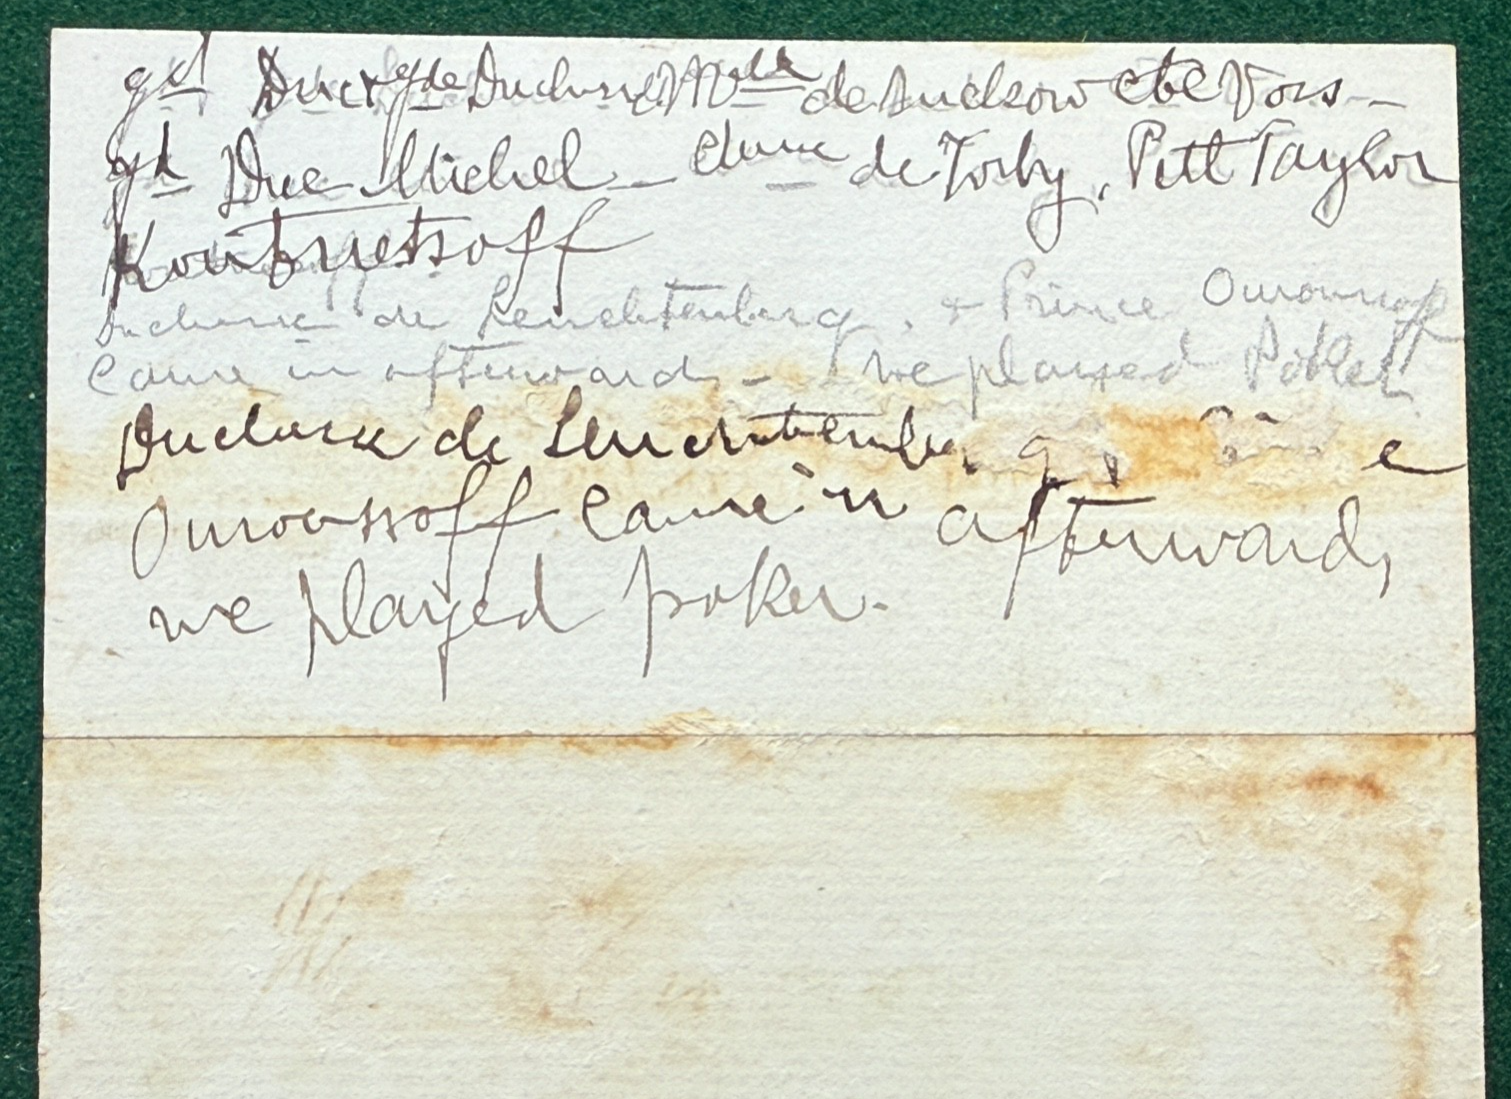 gd Duc & gde Duchesse Mdlle de Suckow cte Vors -
gd Duc Michel - Ctesse de Torby, Pett Taylor
Kouznetsoff
Duchesse de Leuchtenberg. & Prince Ouroussoff
came in afterwards - we played Poker
Duchesse de Leuchtenberg
Ouroussoff came in afterwards
we played poker.